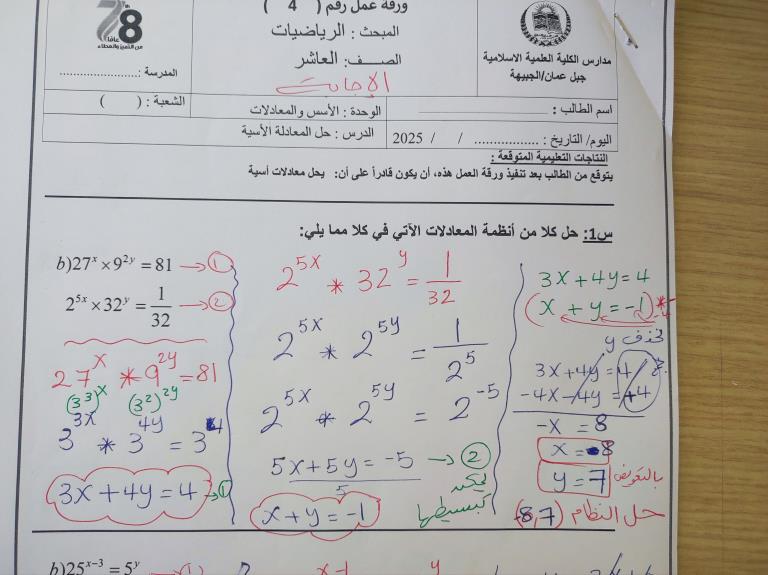 ورقة عمل رقم ( 4 )
المبحث : الرياضيات
الصـــف: العاشر
الإجابات
مدارس الكلية العلمية الاسلامية
جبل عمان/الجبيهة
78
عامًا
من التميز والعطاء
المدرسة :.......................
اسم الطالب : ...............
الوحدة : الأسس والمعادلات
الشعبة : ( )
اليوم/ التاريخ : ................. / / 2025
الدرس : حل المعادلة الأسية
النتاجات التعليمية المتوقعة :
يتوقع من الطالب بعد تنفيذ ورقة العمل هذه، أن يكون قادراً على أن: يحل معادلات أسية
س1: حل كلا من أنظمة المعادلات الآتي في كلا مما يلي:
b)27^x × 9^{2y} = 81 → ①
2^{5x} × 32^y = 1/32 → ②
27^x * 9^{2y} = 81
(3^3)^x (3^2)^{2y}
3^{3x} * 3^{4y} = 3^4
3x + 4y = 4 → ①
2^{5x} * 32^y = 1/32
2^{5x} * 2^{5y} = 1/2^5
2^{5x} * 2^{5y} = 2^{-5}
5x + 5y = -5 → ②
5
يمكن
تبسيطها
x + y = -1
3x + 4y = 4
(x + y = -1) * -4
نحذف y
3x + 4y = 4
-4x - 4y = +4
-x = 8
x = -8
y = 7 بالتعويض
حل النظام (-8,7)
b)25^{x-3} = 5^y